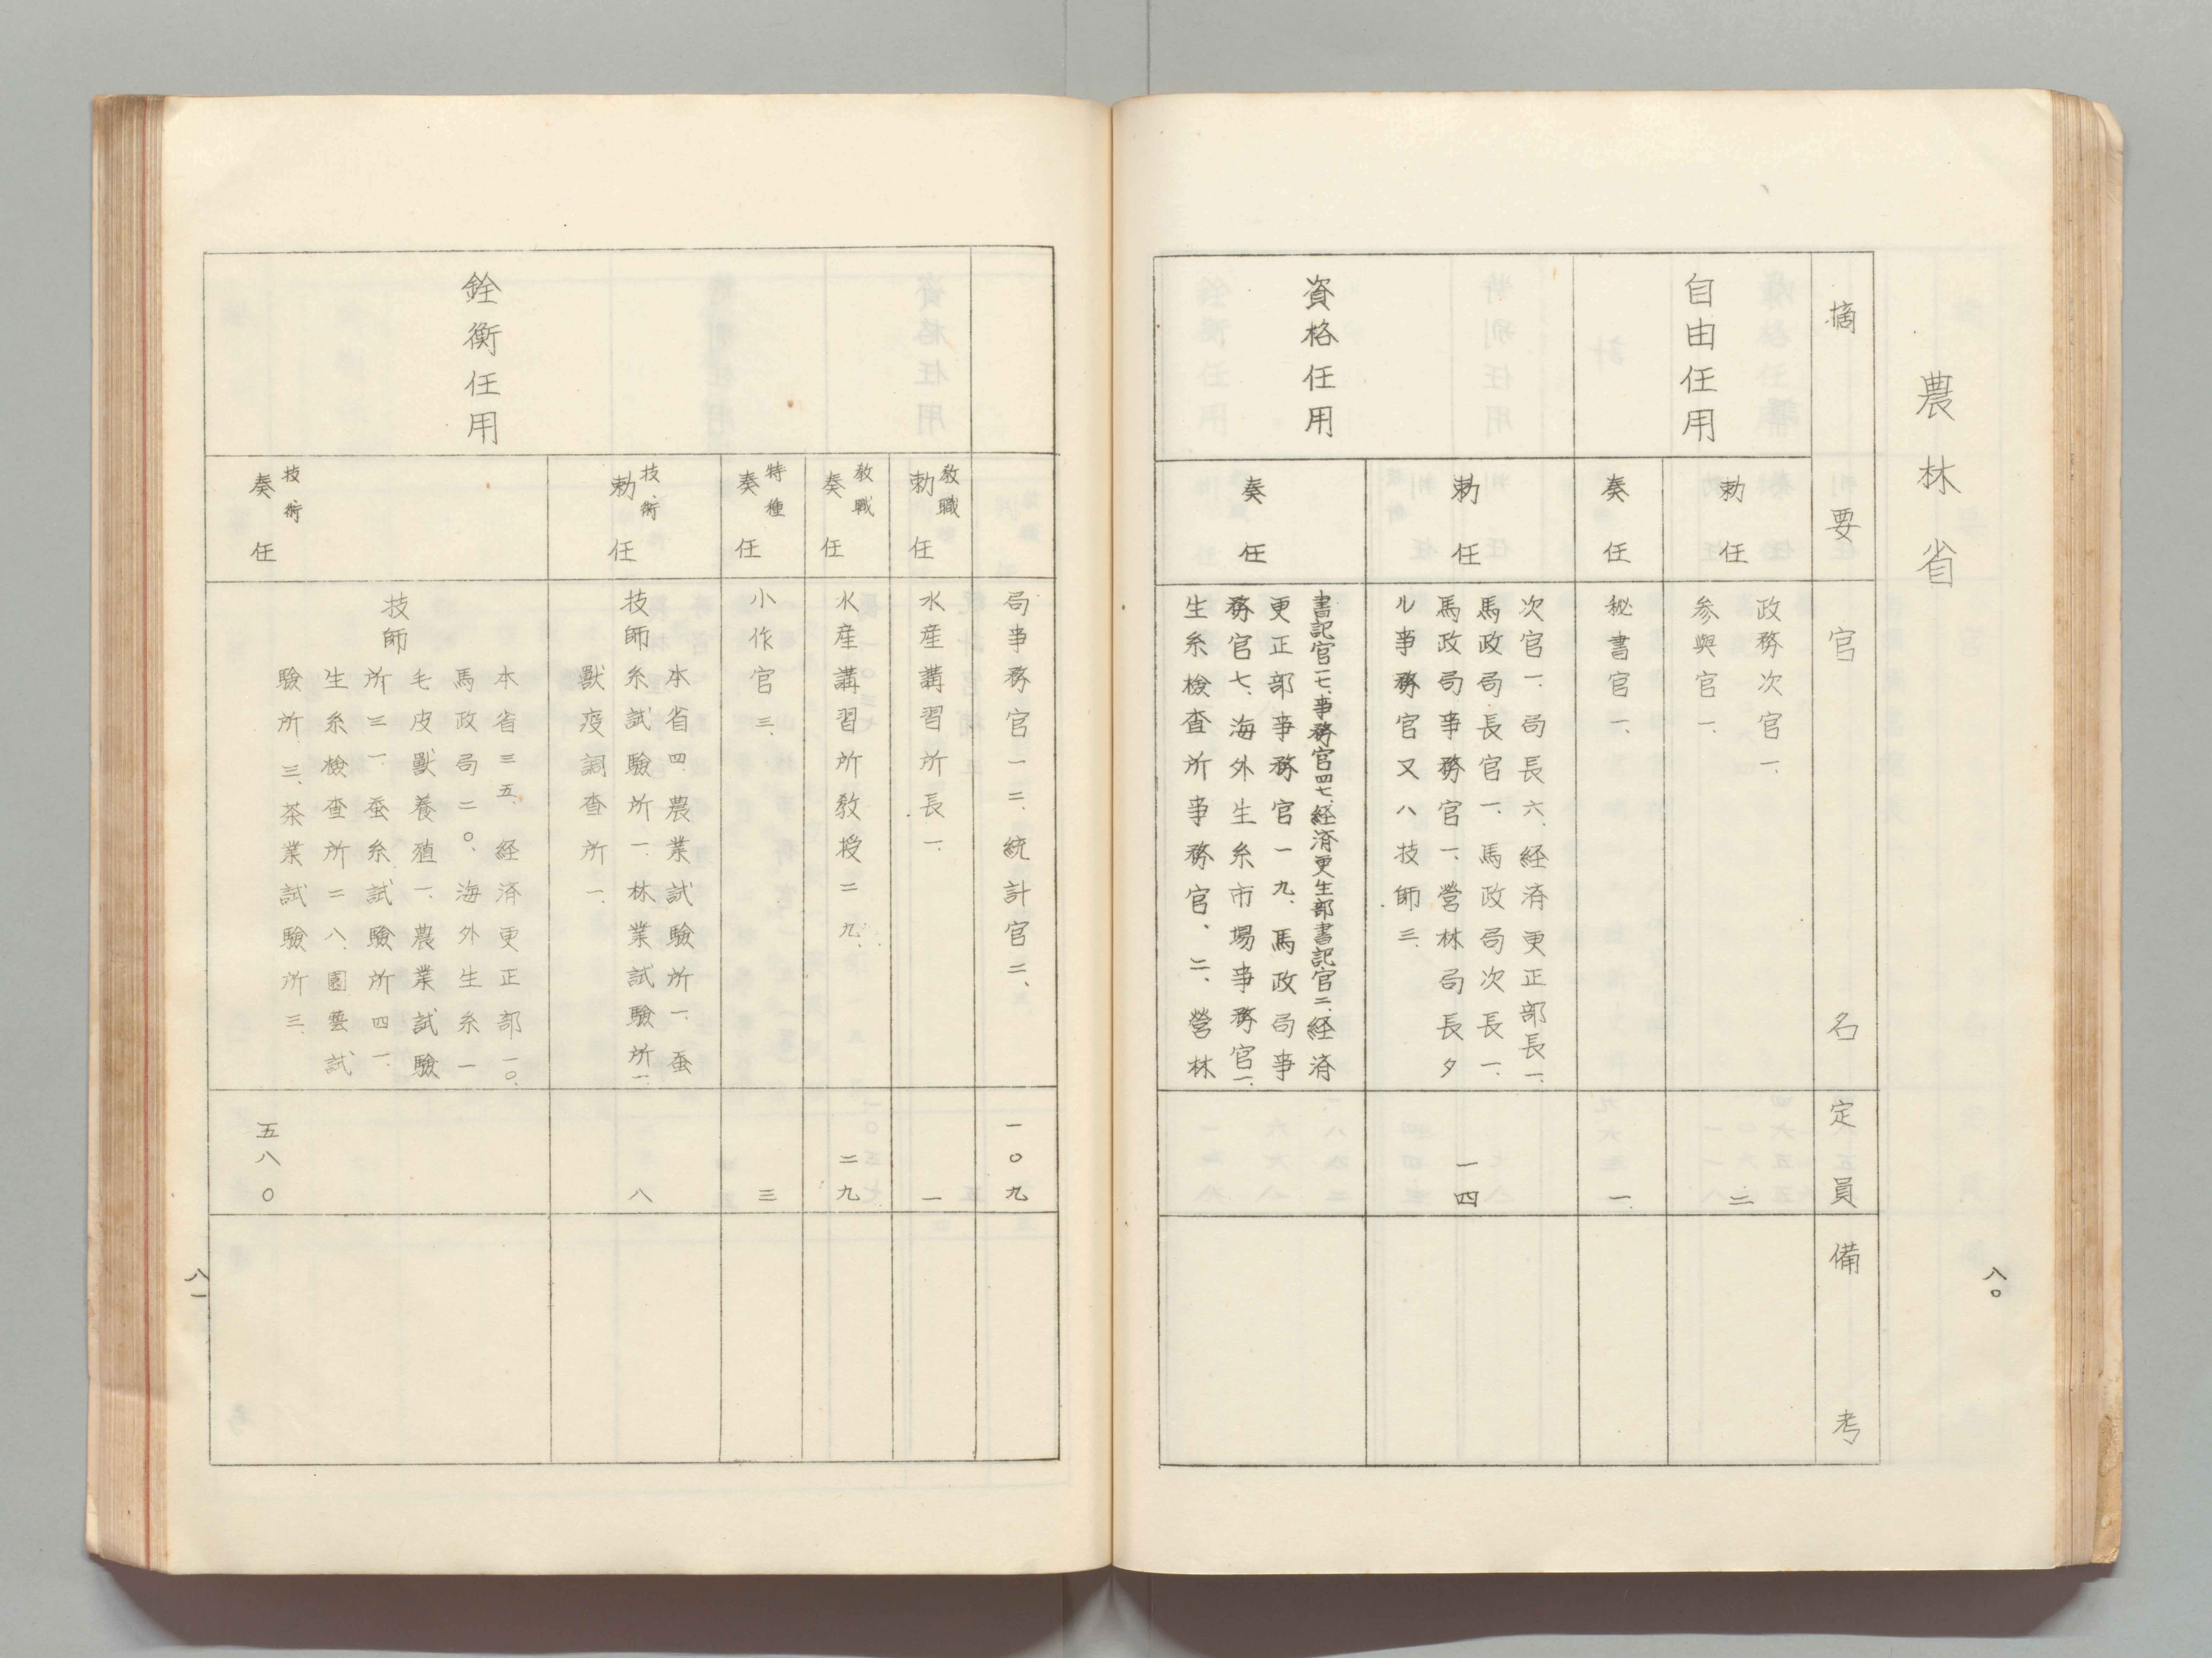 農林省
摘要
官名
定員
備考
自由任用
勅任
政務次官一、
参與官一、
二
奏任
秘書官一、
一
資格任用
勅任
次官一、局長六、経済更正部長一、
馬政局長官一、馬政局次長一、
馬政局事務官一、営林局長タ
ル事務官又ハ技師三、
一四
奏任
書記官一七、事務官四七、経済更生部書記官二、経済
更正部事務官一九、馬政局事
務官七、海外生糸市場事務官一、
生糸検査所事務官、二、営林
八〇
局事務官一二、統計官二、
一〇九
銓衡任用
教職
勅任
水産講習所長一、
一
教職
奏任
水産講習所教授二九、
二九
特種
奏任
小作官三、
三
技術
勅任
技師
本省四、農業試験所一、蚕
糸試験所一、林業試験所一、
獣疫調査所一、
八
技術
奏任
技師
本省三五、経済更正部一〇、
馬政局二〇、海外生糸一
毛皮獣養殖一、農業試験
所三一、蚕糸試験所四一、
生糸検査所二八、園藝試
験所三、茶業試験所三、
五八〇
八一